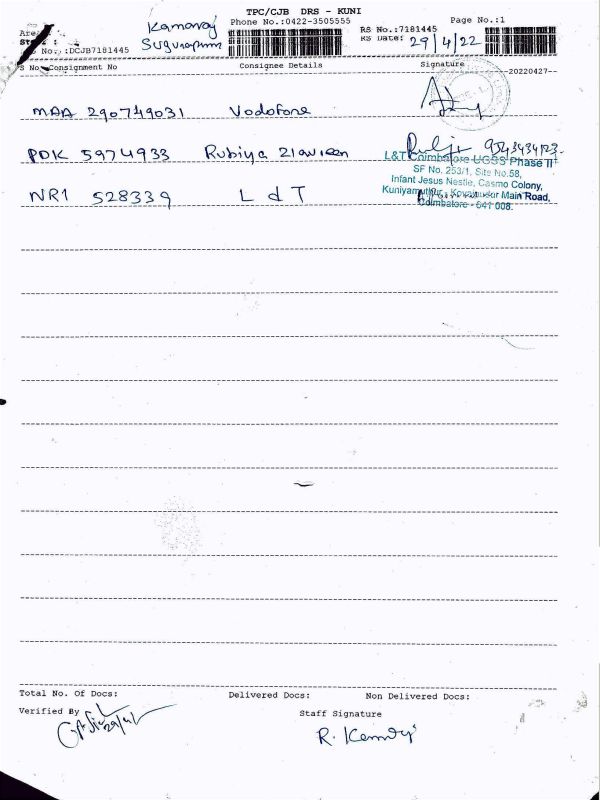 TPC/CJB DRS - KUNI
Phone No.:0422-3505555 Page No.:1
Kamaraj
RS No.:7181445
RS Date: 29/4/22
No.:DCJB7181445
S No. Consignment No Consignee Details Signature
20220427
MAA 290749031 Vodofone
PDK 5974933 Rubiya
NR1 528339 L & T
L&T Coimbatore UGSS Phase II
SF No. 253/1, Site No.58,
Infant Jesus Nestle, Casmo Colony,
Kuniyamuthur, Kovaipudur Main Road,
Coimbatore - 641 008.
Total No. Of Docs: Delivered Docs: Non Delivered Docs:
Verified By
29/4/
Staff Signature
R. Kamaraj